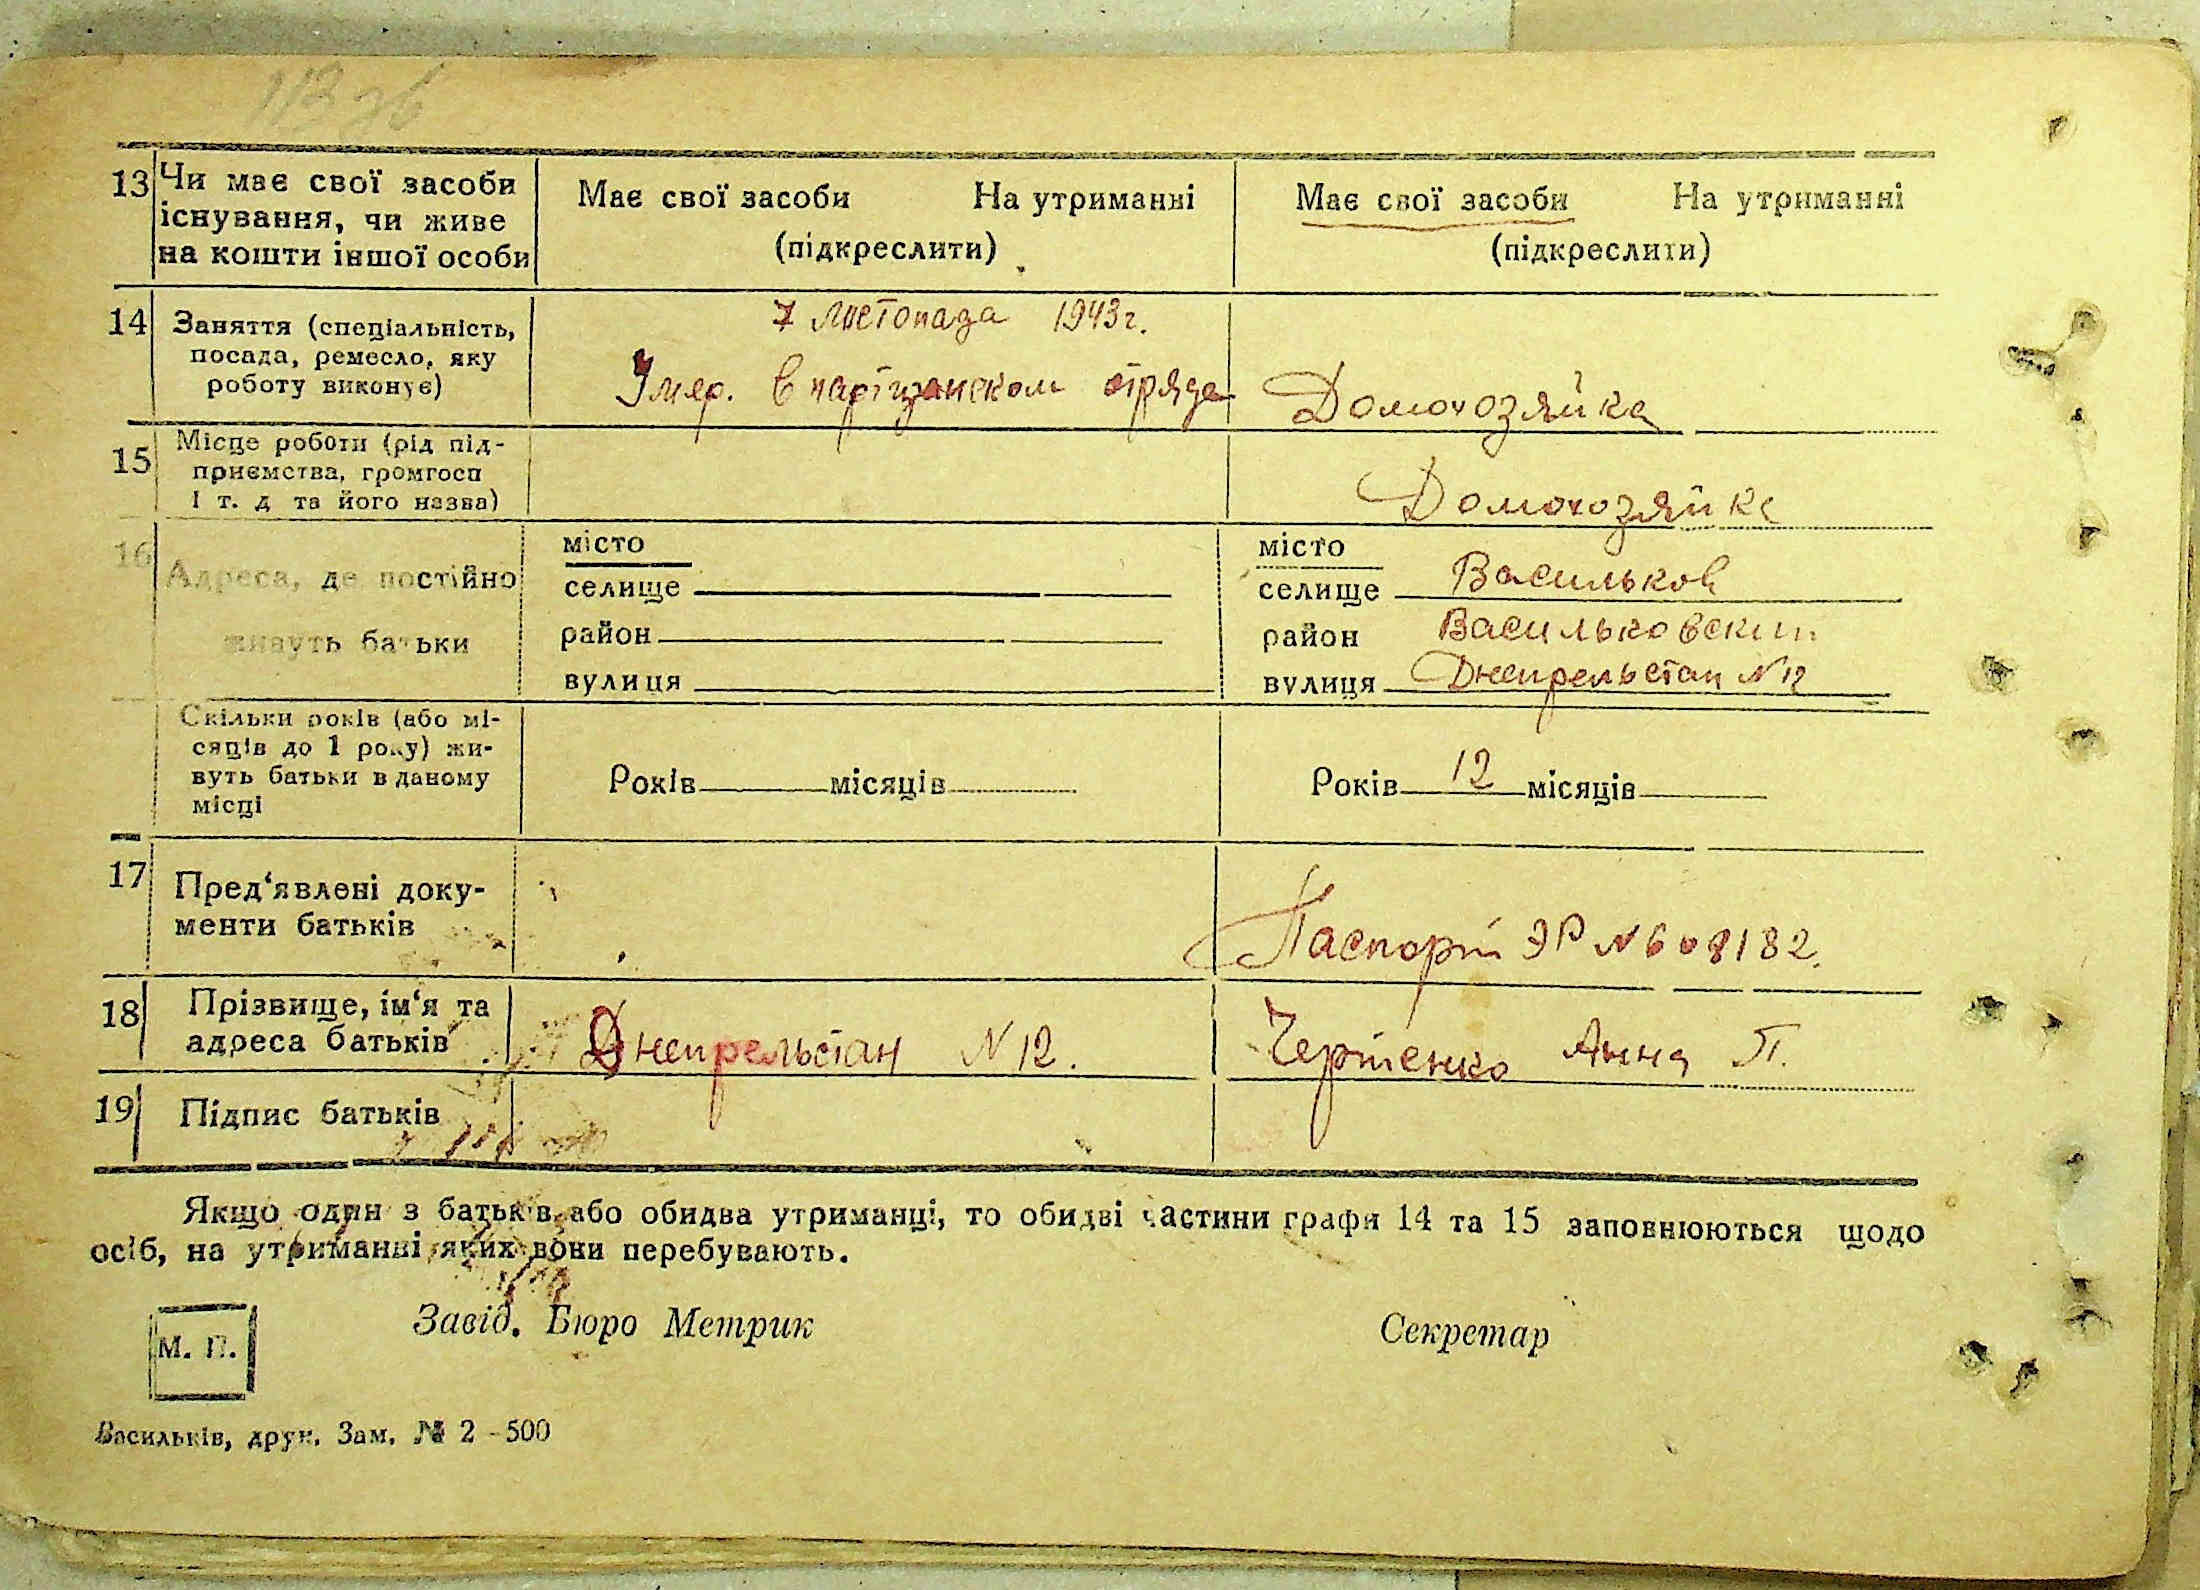 13 Чи має свої засоби існування, чи живе на кошти іншої особи
Має свої засоби На утриманні
(підкреслити)
Має свої засоби На утриманні
(підкреслити)
14 Заняття (спеціальність,
посада, ремесло, яку
роботу виконує)
7 листопада 1943г.
Умер. в партизанском отряде
Домохозяйка
15 Місце роботи (рід під-
приємства, громгосп
і т. д та його назва)
Домохозяйка
16 Адреса, де постійно
живуть батьки
місто
селище
район
вулиця
місто
селище Васильков
район Васильковский
вулиця Днепрельстан N 12
Скільки років (або мі-
сяців до 1 року) жи-
вуть батьки в даному
місці
Років місяців
Років 12 місяців
17 Пред‘явлені доку-
менти батьків
Паспорт ЭР N 608182.
18 Прізвище, ім‘я та
адреса батьків
Днепрельстан N 12.
Чертенко Анна П.
19 Підпис батьків
Якщо один з батьків або обидва утриманці, то обидві частини графи 14 та 15 заповнюються щодо
осіб, на утриманні яких вони перебувають.
М. П.
Завід. Бюро Метрик
Секретар
Васильків, друк. Зам. № 2 - 500